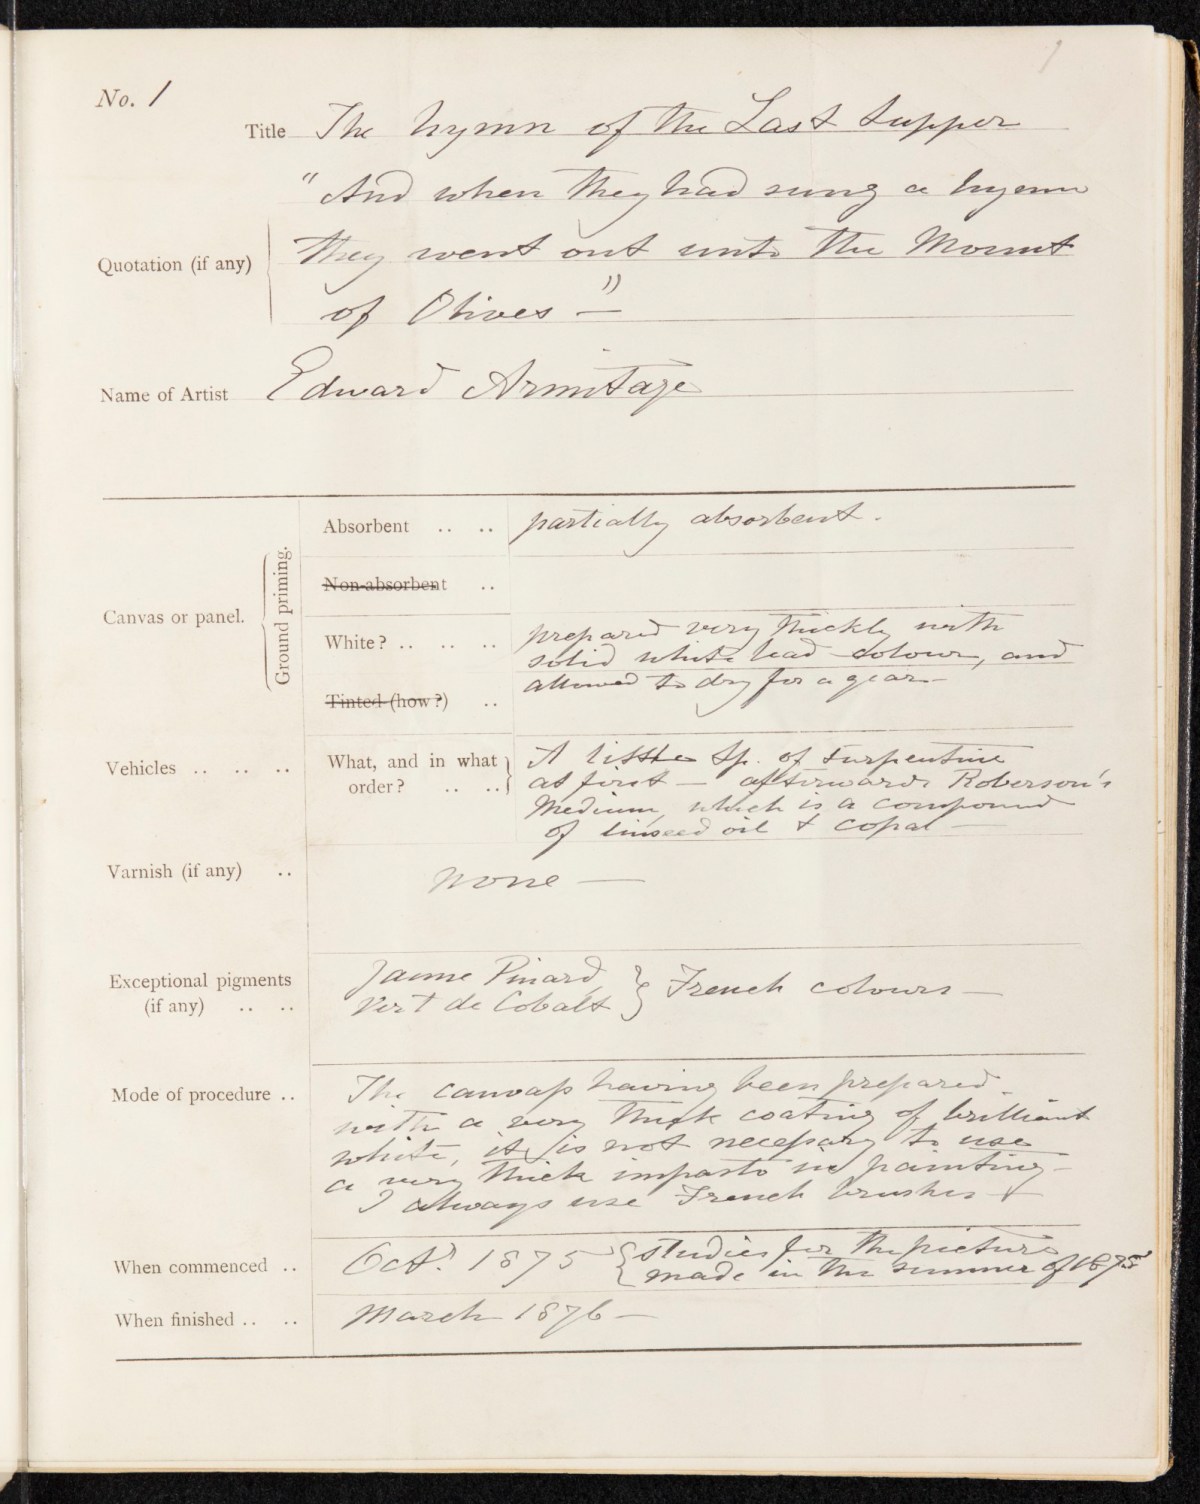 1
No. 1
Title The hymn of the Last Supper
"And when they had sung a hymn
Quotation (if any) they went out unto the Mount
of Olives —"
Name of Artist Edward Armitage
Canvas or panel.
Ground priming.
Absorbent .. .. partially absorbent.
Non-absorbent ..
White? .. .. .. prepared very thickly with
solid white lead colour, and
Tinted (how?) .. allowed to dry for a year —
Vehicles .. .. .. What, and in what order? .. .. A little Sp. of turpentine
at first — afterwards Roberson's
Medium, which is a compound
of linseed oil & copal —
Varnish (if any) .. none —
Exceptional pigments (if any) .. .. Jaune Pinard, } French colours —
Vert de Cobalt
Mode of procedure .. The canvass having been prepared
with a very thick coating of brilliant
white, it is not necessary to use
a very thick impasto in painting —
I always use French brushes
When commenced .. Octr. 1875 { studies for the picture
made in the summer of 1875
When finished .. .. March 1876 —